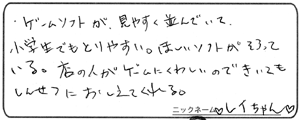 ・ゲームソフトが、見やすく並んでいて、
小学生でもとりやすい。ほしいソフトがそろって
いる。店の人がゲームにくわしいのできいても
しんせつにおしえてくれる。
ニックネーム♡レイちゃん♡